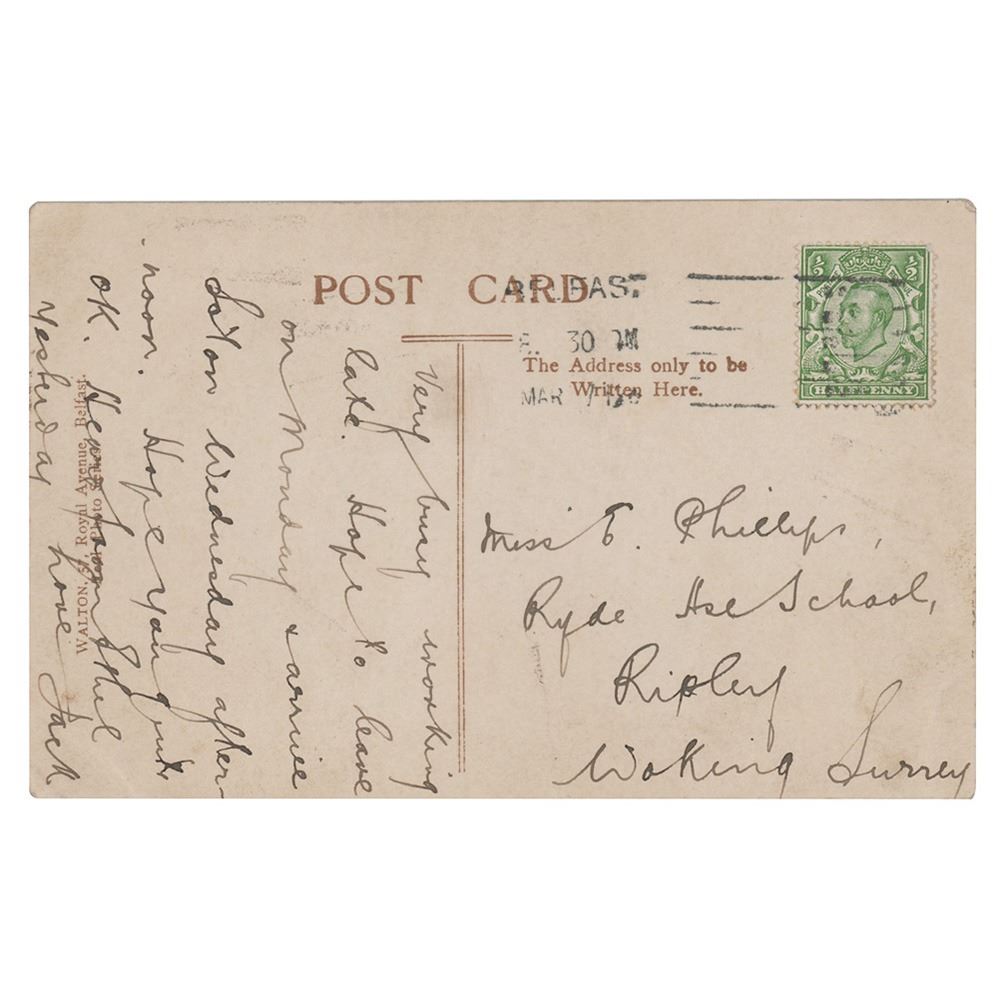 POST CARD
BELFAST
30 PM
MAR
½ ½
HALFPENNY
The Address only to be
Written Here.
Very busy working
late. Hope to leave
on Monday & arrive
So'ton Wednesday after
noon. Hope you quite
OK. Heard from Ethel
Yesterday love Jack
Miss E. Phillips,
Ryde Hse School,
Ripley
Woking Surrey
WALTON, 57, Royal Avenue, Belfast.
Photo Series